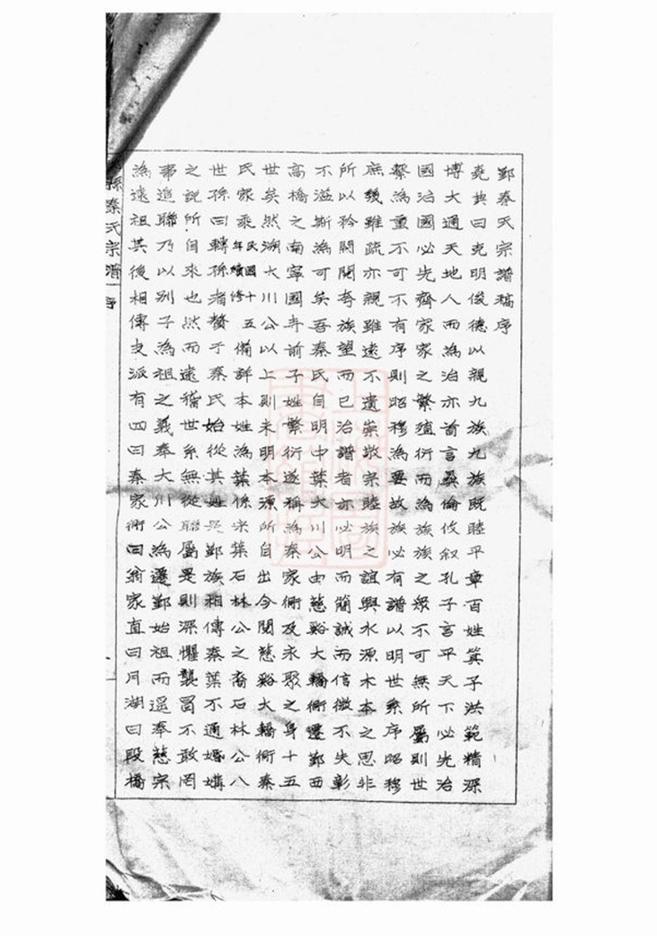 鄞秦氏宗譜稿序
堯典曰克明俊德以親九族九族既睦平章百姓箕子洪範精深
博大通天地人而為治亦首言彝倫攸叙孔子言平天下必先治
國治國必先齊家家之繁殖衍而為族族之眾不可無所屬則世
繫為重不可不有序則昭穆為要故族必有譜以明世系序昭穆
庶幾雖疏亦親雖遠不遺崇敬宗睦族之誼興水源木本之思非
所以矜閥閱夸族望而已治譜者亦必明而簡誠而信微不失彰
不溢斯為可矣吾秦氏自明中葉大川公由慈谿大轎衖遷鄞西
高橋之南寧國寺前子姓繁衍遂稱為秦家衖及永聚之身十五
世矣然溯大川公以上則未明本源所自出今閱慈谿大轎衖秦
氏家乘民國十五年續修備詳本姓為葉係宋葉石林公之裔石林公八
世孫曰轉孫者贅于秦氏始從其姓是鄞族相傳秦葉不通婚媾
之說所自來也然而遠稽世系無從聯屬是則深懼襲冒不敢罔
事追聯乃以別子為祖之義奉大川公為遷鄞始祖而遥奉慈宗
為遠祖其後相傳支派有四曰秦家衖曰翁家直曰月湖曰段橋
縣秦氏宗譜 序